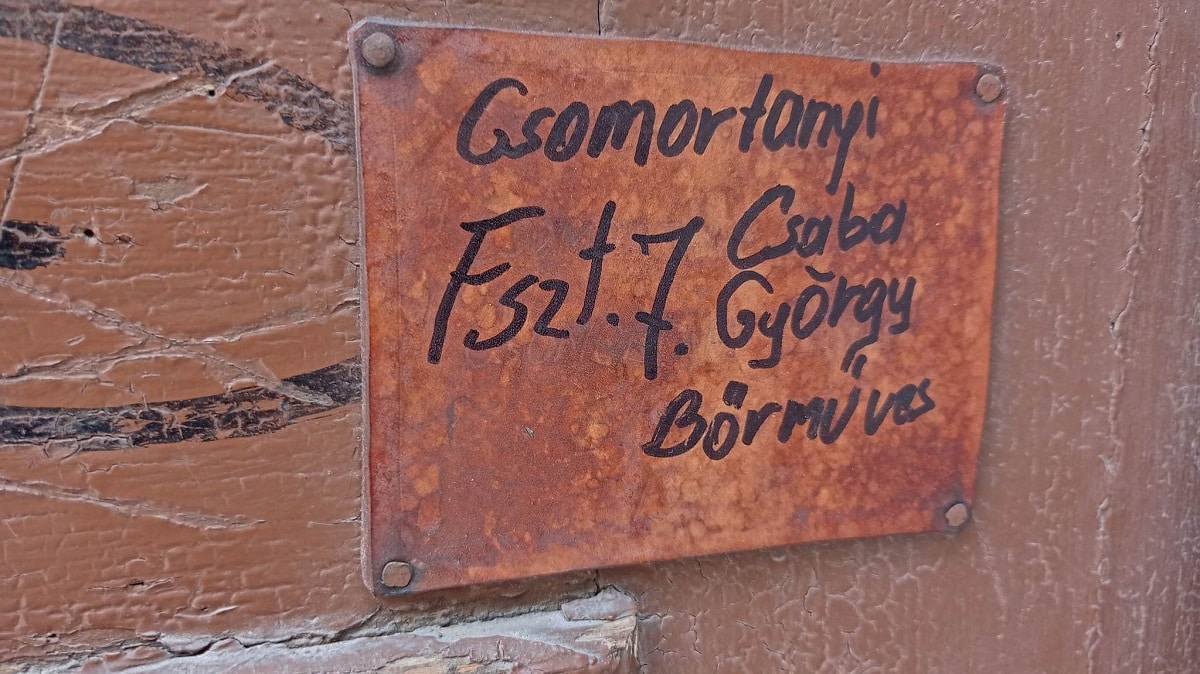 Csomortanyi
Fszt. 7. Csaba
György
Bőrműves